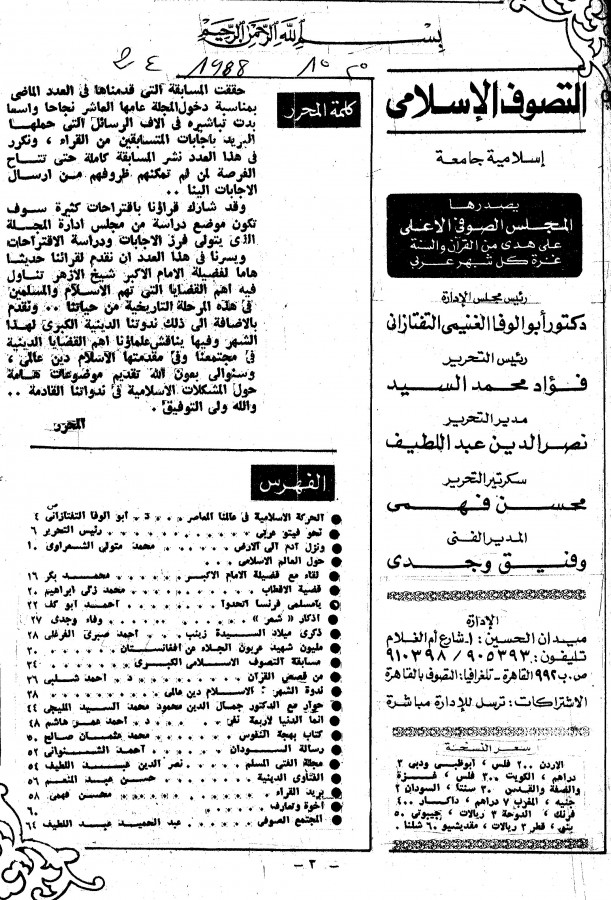 بسم الله الرحمن الرحيم
1988
التصوف الإسلامى
إسلامية جامعة
يصدرها
المجلس الصوفى الأعلى
على هدى من القرآن والسنة
غرة كل شهر عربى
رئيس مجلس الإدارة
دكتور أبو الوفا الغنيمى التفتازانى
رئيس التحرير
فؤاد محمد السيد
مدير التحرير
نصر الدين عبد اللطيف
سكرتير التحرير
محسن فهمى
المدير الفنى
وفيق وجدى
الإدارة
ميدان الحسين: ١ شارع أم الغلام
تليفون: ٩٠٥٣٩٣ / ٩١٠٣٩٨
ص.ب ٩٩٢ القاهرة - تلغرافيا: التصوف بالقاهرة
الاشتراكات: ترسل للإدارة مباشرة
سعر النسخة
الاردن ٢٠٠ فلس ، أبوظبى ودبى ٣
دراهم ، الكويت ٣٠٠ فلس ، غــزة
والضفة والقدس ٣٠ سنتا ، السودان ٢
جنيه ، المغرب ٧ دراهم ، داكــار ٤٠٠
فرنك ، الدوحة ٣ ريالات ، جيبوتى ٥٠
بنى ، قطر ٣ ريالات ، مقديشيو ٦٠ شلنا .
كلمة المحرر
حققت المسابقة التى قدمناها فى العدد الماضى
بمناسبة دخول المجلة عامها العاشر نجاحا واسعا
بدت تباشيره فى آلاف الرسائل التى حملها
البريد باجابات المتسابقين من القراء ، ونكرر
فى هذا العدد نشر المسابقة كاملة حتى تتــاح
الفرصة لمن لم تمكنهم ظروفهم مــن ارســال
الاجابات الينا ..
وقد شارك قراؤنا باقتراحات كثيرة سوف
تكون موضع دراسة من مجلس ادارة المجلة
الذى يتولى فرز الاجابات ودراسة الاقتراحات
ويسرنا فى هذا العدد ان نقدم لقرائنا حديثا
هاما لفضيلة الامام الاكبر شيخ الازهر تناول
فيه اهم القضايا التى تهم الاسلام والمسلمين
فى هذه المرحلة التاريخية من حياتنا .. ونقدم
بالاضافة الى ذلك ندوتنا الدينية الكبرى لهــذا
الشهر وفيها يناقش علماؤنا اهم القضايا الدينية
فى مجتمعنا وفى مقدمتها الاسلام دين عالمى ،
وسنوالى بعون الله تقديم موضوعات هــامة
حول المشكلات الاسلامية فى ندواتنا القادمة ..
والله ولى التوفيق .
المحرر
الفهرس
ص
● الحركة الاسلامية فى عالمنا المعاصر .. د . ابو الوفا التفتازانى ٤
● نحو فيتو عربى .... رئيس التحرير ٦
● ونزل آدم الى الارض .... محمد متولى الشعراوى ١٠
● حول العالم الاسلامى ...
● لقاء مع فضيلة الامام الاكبــر .... محمــد بكر ١٦
● قضية الاقطاب .... محمد زكى ابراهيم ٢٠
● يامسلمى فرنسا اتحدوا .... احمــد ابو كف ٢٢
● اذكار « شعر » .... وفاء وجدى ٢٧
● ذكرى ميلاد الســيدة زينب .... احمد صبرى الفرغلى ٢٨
● مليون شهيد عربون الجلاء عن افغانستان .... ٣٠
● مسابقة التصوف الاسـلامى الكبـرى .... ٣٤
● من قصص القرآن .... د . احمد شــلبى ٣٦
● ندوة الشهر : الاســلام دين عالمى .... ٣٨
● حوار مع الدكتور جمال الدين محمود محمد السيد المليجى ٤٤
● انما الدنيا لاربعة نفر : .... د . احمد عمر هاشم ٤٨
● كتاب بهجة النفوس .... محمد عثمــان صالح ٥٠
● رسالة الســودان .... احمــد الشــنوانى ٥٢
● مجلة الفتى المسلم .... نصر الدين عبــد اللطيف ٥٤
● الفتاوى الدينية .... حسن عبد المنعم ٥٦
● بريد القراء .... محسن فهمى ٥٨
● أخوة وتعارف .... ٦٠
● المجتمع الصوفى .... عبد الحميـد عبـد اللطيف ٦٤
- ٣ -